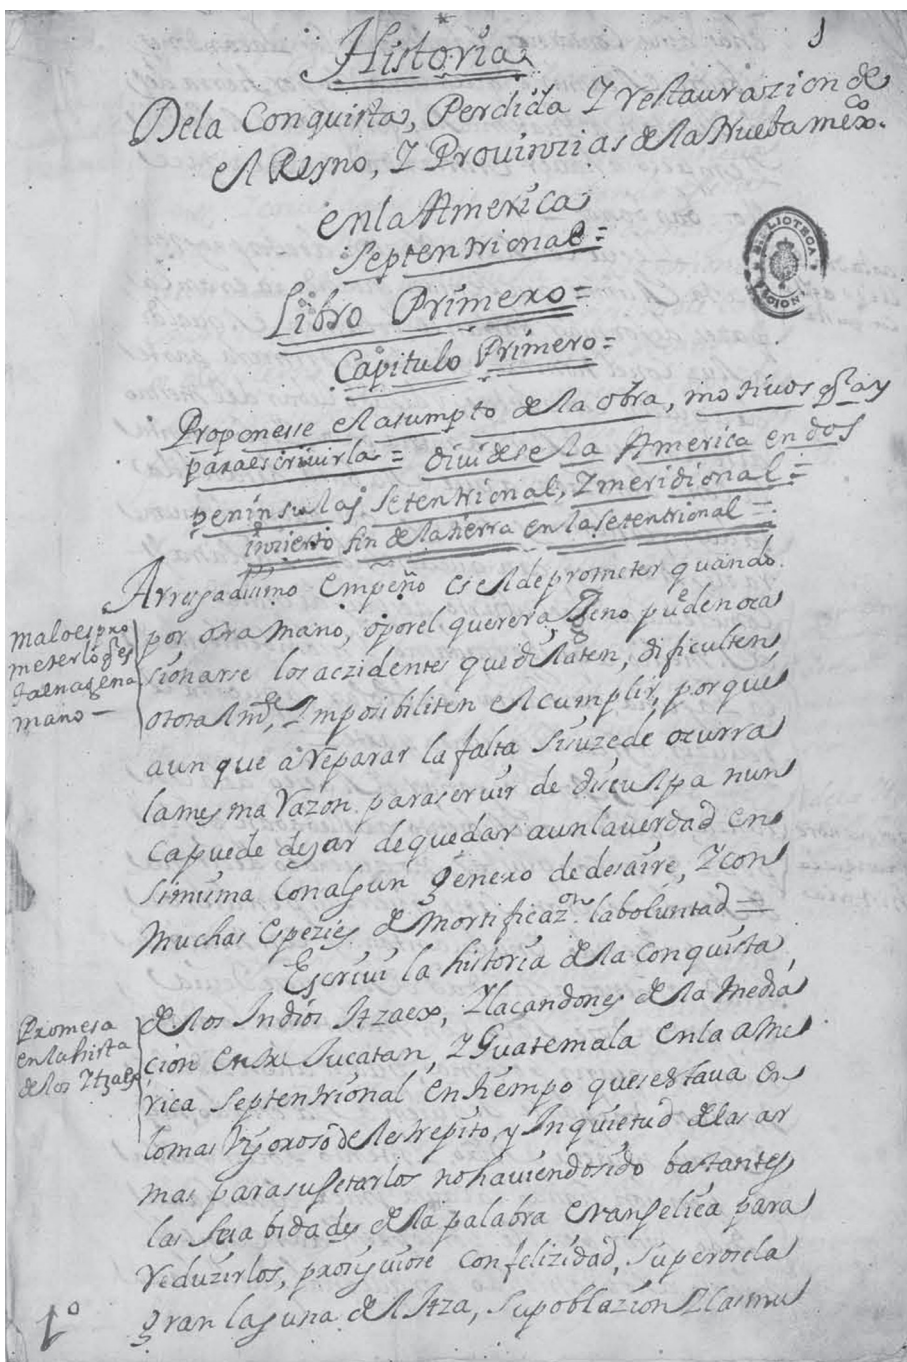 1
Historia
De la Conquista, Perdida Y restaurazion de
el Reyno, Y Provinzias de la Nueba mexco.
en la America
Septentrional =
Libro Primero =
Capitulo Primero =
Proponesse el asumpto de la obra, motivos q̃ ay
para escrivirla = dividese la America en dos
peninsulas Setentrional, Y meridional =
inzierto fin de la tierra en la Setentrional =
Arresgadissimo empeño es el de prometer quando
por otra mano, o por el querer ageno pueden oca
sionarse los aczidentes que dilaten, dificulten,
o totalmte, Ymposibiliten el cumplir, porque
aun que a reparar la falta si suzede ocurra
la mesma razon para servir de disculpa nun
ca puede dejar de quedar aun la verdad en
si misma con algun genero de desaire, Y con
muchas espezies de mortificazon la boluntad =
Escrivi la historia de la Conquista
de los Indios Itzaex, Y lacandones de la media
cion entre Yucatan, Y Guatemala en la Ame
rica Septentrional en tiempo que estava en
lo mas rigoroso del estrepito, y inquietud de las ar
mas para sugetarlos no haviendo sido bastantes
las suabidades de la palabra evangelica para
reduzirlos, prosiguiose con felizidad, superose la
gran laguna del Itza, su poblazion Y las mu
malo es pro
meter lo q̃ es
ta en agena
mano —
Promesa
en la hista
de los Ytzaex
1º
BIBLIOTECA